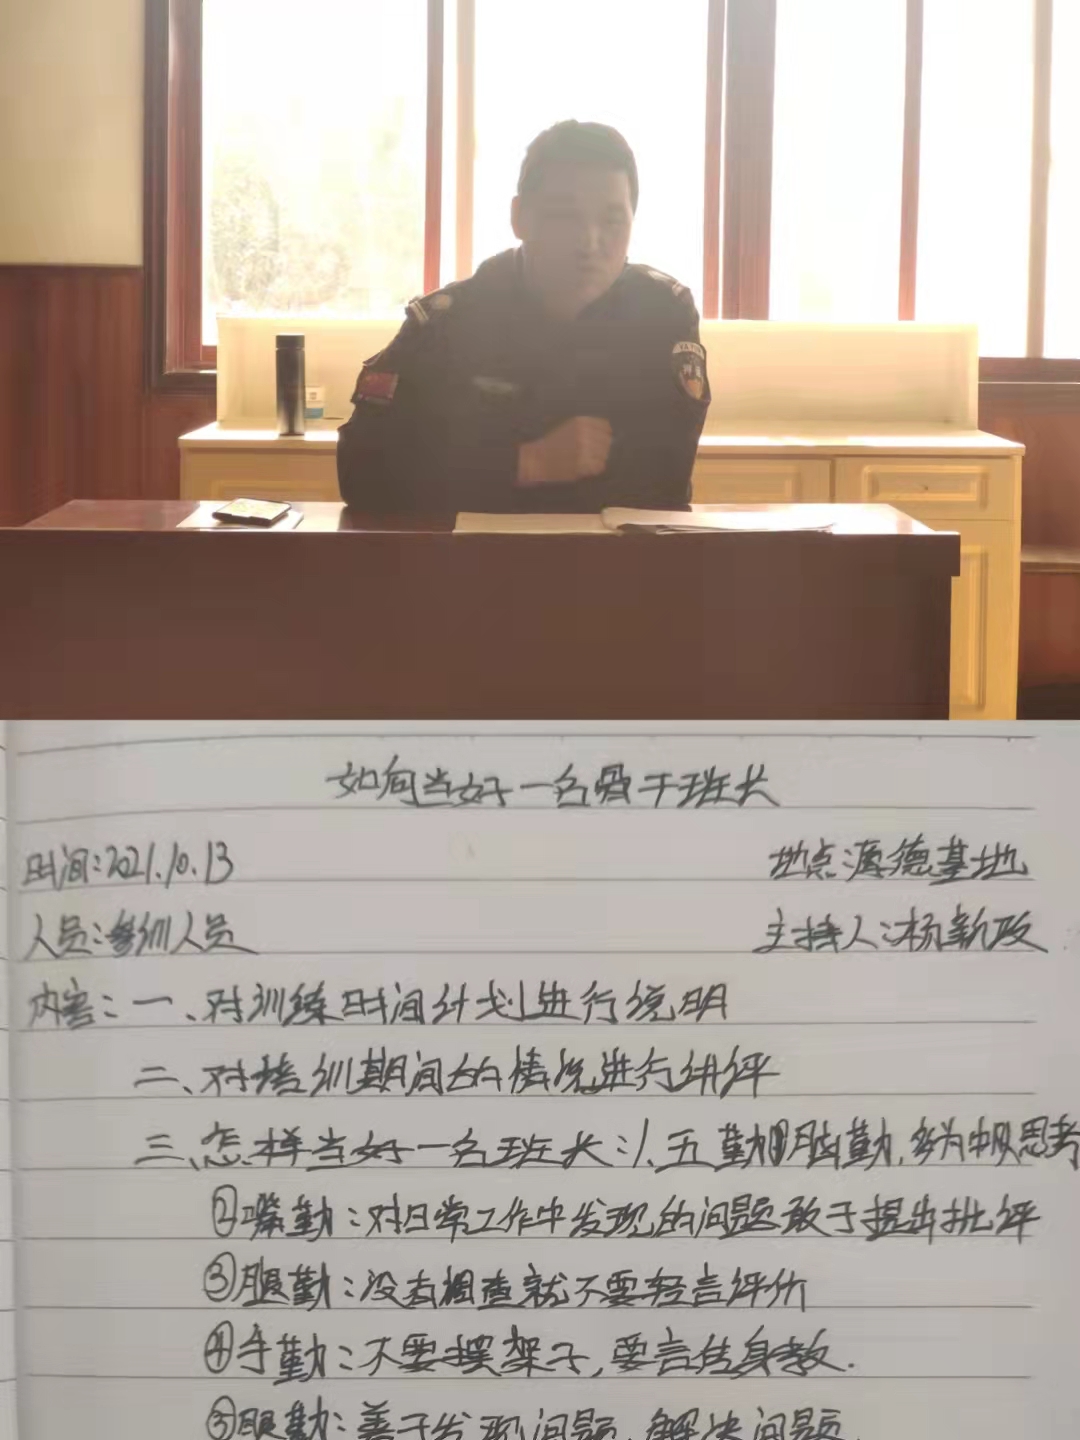 如何当好一名骨干班长
时间:2021.10.13 地点:源德基地
人员:参训人员 主持人:杨新政
内容:一、对训练时间计划进行说明
二、对培训期间的情况进行讲评
三、怎样当好一名班长:1、五勤①脑勤,多为中队思考
②嘴勤:对日常工作中发现的问题敢于提出批评
③腿勤:没有调查就不要轻言评价
④手勤:不要摆架子,要言传身教.
⑤眼勤:善于发现问题,解决问题.